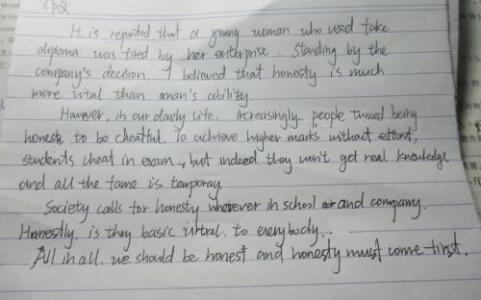 It is reported that a young woman who used fake
diploma was fired by her enterprise. Standing by the
company's decision, I believed that honesty is much
more vital than oman's ability
However, in our daily life, increasingly people turned being
honest to be cheatful. To achieve higher marks without effort,
students cheat in exam, but indeed they won't get real knowledge
and all the fame is temporay
Society calls for honesty wherever in school and company.
Honestly is they basic virtral to everybody..
All in all, we should be honest and honesty must come first.